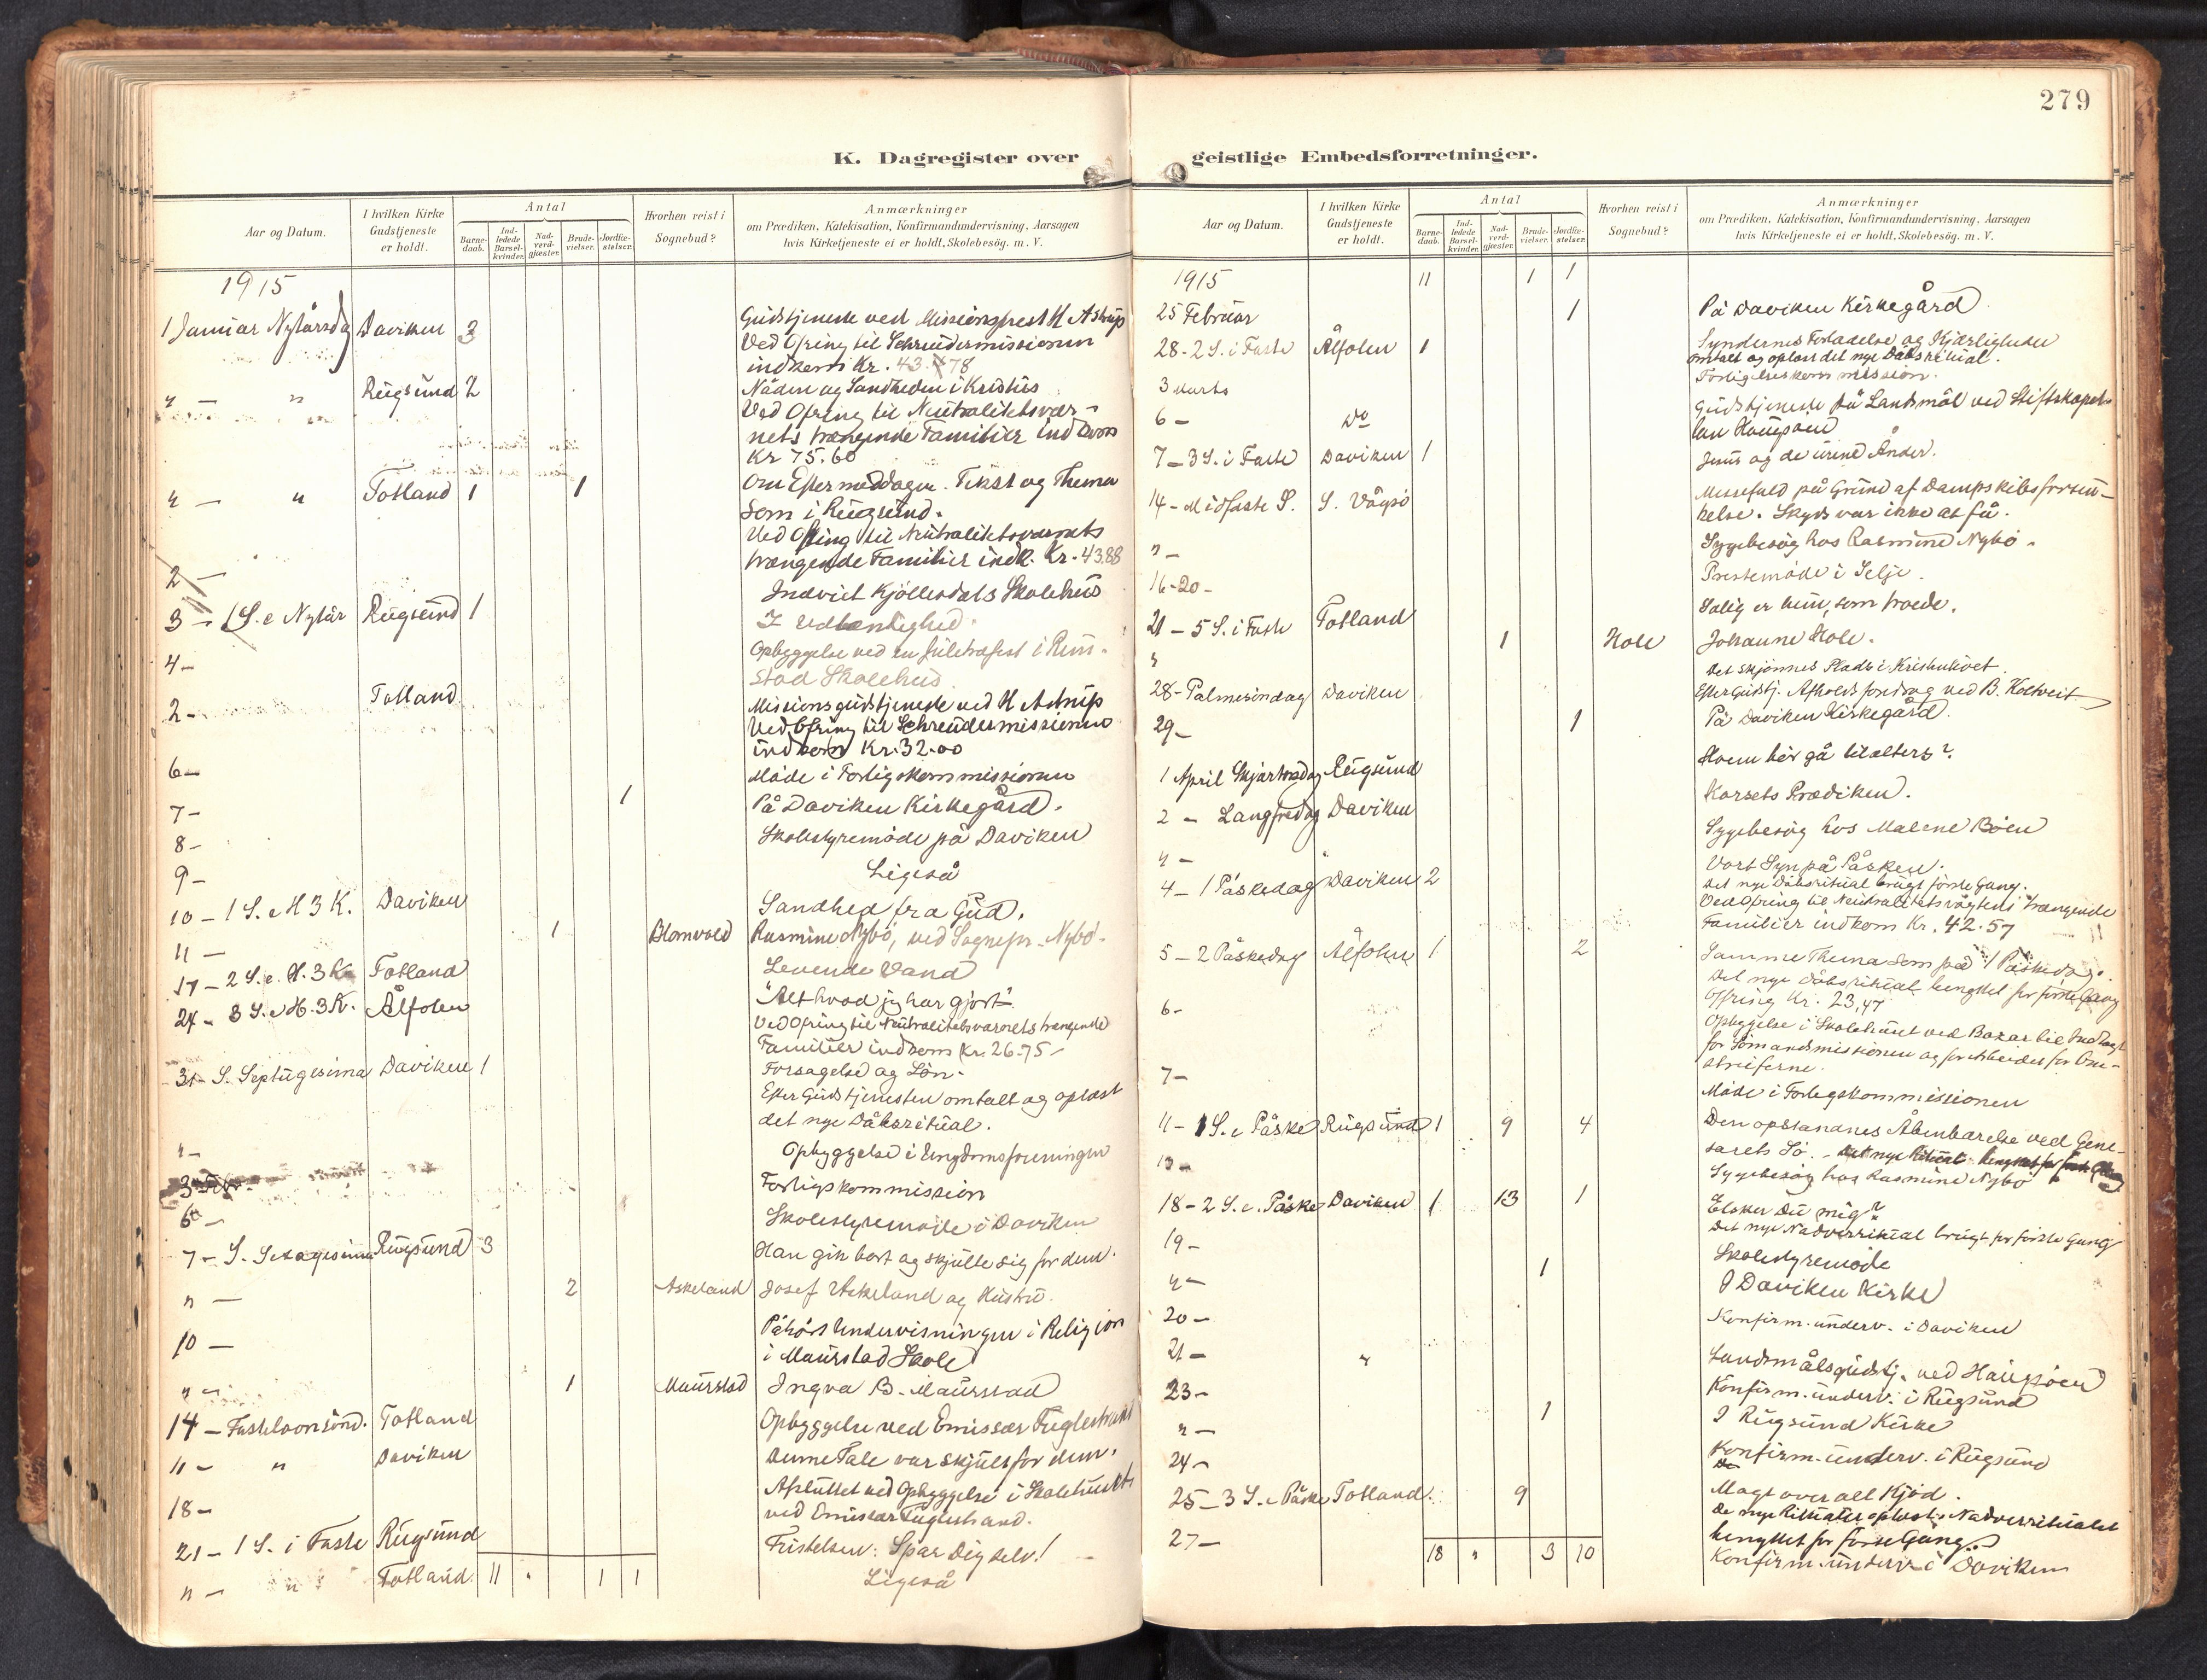 279
K. Dagregister over
geistlige Embedsforretninger.
Aar og Datum.
I hvilken Kirke
Gudstjeneste
er holdt.
Antal
Barne-
daab.
Ind-
ledede
Barsel-
kvinder.
Nad-
verd-
gjæster.
Brude-
vielser.
Jordfæ-
stelser.
Hvorhen reist i
Sognebud?
Anmærkninger
om Prædiken, Katekisation, Konfirmandundervisning, Aarsagen
hvis Kirketjeneste ei er holdt, Skolebesög. m. V.
1915
1 Januar Nytårsdg Daviken 3 Gudstjeneste ved Missionsprest H Astrup
Ved Ofring til Schreudermissionen
indkom Kr. 43.78
" — " Rugsund 2 Nåden og Sandheden i Kristus
Ved Ofring til Neutralitetsvær-
nets trængende Familier indkom
Kr 75.60
" — " Totland 1 1 Om Eftermiddagen. Tekst og Thema
som i Rugsund.
Ved Ofring til Neutralitetsværnets
trængende Familier indk. Kr. 43.88
2 — Indviet Kjöllesdals Skolehus
3 — 1 S. e Nytår Rugsund 1 I Udlændighed.
4 — Opbyggelse ved en juletræfest i Rim-
stad Skolehus
2 — Totland Missionsgudstjeneste ved H Astrup
Ved Ofring til Schreudermissionen
indkom Kr. 32.00
6 — Möde i Forligskommissionen
7 — 1 På Daviken Kirkegård.
8 — Skolestyremöde på Daviken
9 — Ligeså
10 — 1 S. e H 3 K. Daviken Sandhed fra Gud.
11 — 1 Blomvold Rasmine Nybö, ved Sognepr. Nybö.
17 — 2 S. e. H. 3 K. Totland Levende Vand
24 — 3 S. e H. 3 K. Ålfoten "Alt hvad jeg har gjort"
Ved Ofring til Neutralitetsværnets trængende
Familier indkom Kr. 26.75
31 — S. Septugesima Daviken 1 Forsagelse og Lön.
Efter Gudstjenesten omtalt og oplæst
det nye Dåbsritual.
" — Opbyggelse i Ungdomsforeningen
3 Febr. Forligskommission
6 — Skolestyremöde i Daviken
7 — S. Sexagesima Rugsund 3 Han gik bort og skjulte sig for dem.
" — 2 Askeland Josef Askeland og Hustru.
10 — Påhört Undervisningen i Religion
i Maurstad Skole
" — 1 Maurstad Ingva B. Maurstad
14 — Fastelavnsönd. Totland Opbyggelse ved Emissær Fuglestrand
" — " Daviken Denne Tale var skjult for dem.
18 — Afsluttet ved Opbyggelse i Skolehuset
ved Emissær Fuglestrand.
21 — 1 S. i Faste Rugsund Fristelsen: Spar Dig selv!
" — " Totland 11 " 1 1 Ligeså
Aar og Datum.
I hvilken Kirke
Gudstjeneste
er holdt.
Antal
Barne-
daab.
Ind-
ledede
Barsel-
kvinder.
Nad-
verd-
gjæster.
Brude-
vielser.
Jordfæ-
stelser.
Hvorhen reist i
Sognebud?
Anmærkninger
om Prædiken, Katekisation, Konfirmandundervisning, Aarsagen
hvis Kirketjeneste ei er holdt, Skolebesög. m. V.
1915 11 1 1
25 Februar 1 På Daviken Kirkegård
28 - 2 S. i Faste Ålfoten 1 Syndernes Forladelse og Kjærligheden
omtalt og oplæst det nye Dåbsritual.
3 Marts Forligelseskommission.
6 — Do Gudstjeneste på Landsmål ved Stiftskapel-
lan Haugsöen
7 — 3 S. i Faste Daviken 1 Jesus og de urene Ånder.
14 — Midfaste S. S. Vågsö Messefald på Grund af Dampskibsforsin-
kelse. Skyds var ikke at få.
" — Sygebesög hos Rasmine Nybö.
16-20 — Prestemöde i Selje.
21 — 5 S. i Faste Totland Salig er hun, som troede.
" 1 Hole Johanne Hole.
28 — Palmesöndag Daviken Det skjönnes Plads i Kristenlivet.
Efter Gudstj. Afholds foredrag ved B. Koltveit
29 — 1 På Daviken Kirkegård.
1 April Skjærtorsdag Rugsund Hvem bör gå tilalters?
2 — Langfredag Daviken Korsets Prædiken.
" — Sygebesög hos Malene Böen
4 — 1 Påskedag Daviken 2 Vort Syn på Påsken.
Det nye Dåbsritual brugt förste Gang.
Ved Ofring til Neutralitetsvågtens trængende
Familier indkom Kr. 42.57
5 — 2 Påskedag Ålfoten 1 2 Samme Thema som på 1 Påskedag.
Det nye Dåbsritual benyttet for förste Gang
Offring Kr. 23,47
6 — Opbyggelse i Skolehuset ved Bazar til Indtægt
for Sömandsmissionen og for Arbeidet for Om-
streiferne.
7 — Möde i Forligskommissionen
11 — 1 S. e Påske Rugsund 1 9 4 Den opstandnes Åbenbarelse ved Gene-
sarets Sö. - Det nye Ritual benyttet for förste Gang
13 — Sygebesög hos Rasmine Nybö
18 — 2 S. e. Påske Daviken 1 13 1 Elsker Du mig?
Det nye Nadverritual brugt for förste Gang
19 — Skolestyremöde
" — 1 I Daviken Kirke
20 — Konfirm. underv. i Daviken
21 — " Landsmålsgudstj. ved Haugsöen
23 — Konfirm. underv. i Rugsund
" — 1 I Rugsund Kirke
24 — Konfirm. underv. i Rugsund
25 — 3 S. e Påske Totland 9 Magt over alt Kjöd.
De nye Ritualer oplæst. Nadverritualet
benyttet for förste Gang.
27 — 18 " 3 10 Konfirm. underv. i Daviken